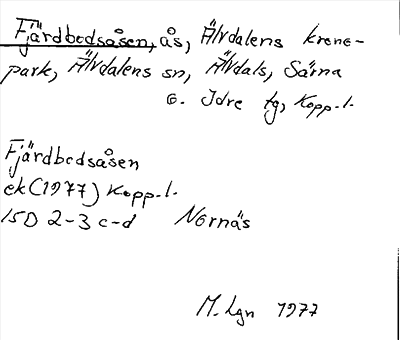 Fjärdbodsåsen, ås, Älvdalens krono-
park, Älvdalens sn, Älvdals, Särna
o. Idre tg, Kopp.l.
Fjärdbodsåsen
ek (1977) Kopp.l.
15D 2-3 c-d Nornäs
M. Lgn 1977